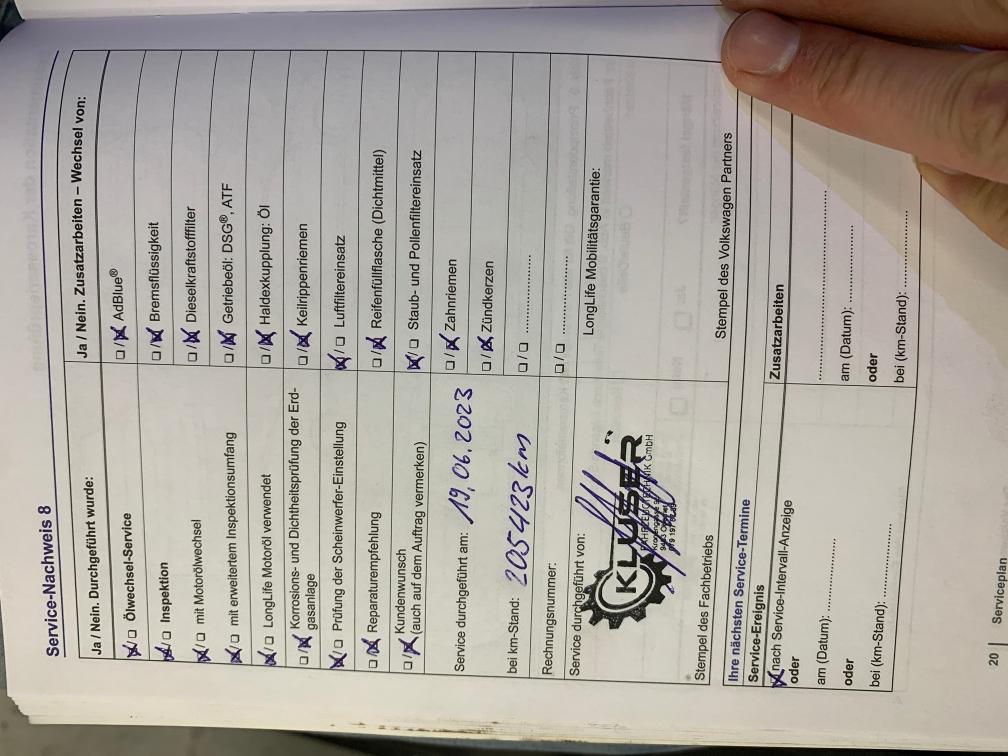 Service-Nachweis 8
Ja / Nein. Durchgeführt wurde:
☒/☐ Ölwechsel-Service
☒/☐ Inspektion
☒/☐ mit Motorölwechsel
☒/☐ mit erweitertem Inspektionsumfang
☒/☐ LongLife Motoröl verwendet
☐/☒ Korrosions- und Dichtheitsprüfung der Erd-
gasanlage
☒/☐ Prüfung der Scheinwerfer-Einstellung
☐/☒ Reparaturempfehlung
☐/☒ Kundenwunsch
(auch auf dem Auftrag vermerken)
Service durchgeführt am: 19.06.2023
bei km-Stand: 205423 km
Rechnungsnummer:
Service durchgeführt von:
KLUSER
GmbH
Stempel des Fachbetriebs
Ja / Nein. Zusatzarbeiten – Wechsel von:
☐/☒ AdBlue®
☐/☒ Bremsflüssigkeit
☐/☒ Dieselkraftstofffilter
☐/☒ Getriebeöl: DSG®, ATF
☐/☒ Haldexkupplung: Öl
☐/☒ Keilrippenriemen
☒/☐ Luftfiltereinsatz
☐/☒ Reifenfüllflasche (Dichtmittel)
☒/☐ Staub- und Pollenfiltereinsatz
☐/☒ Zahnriemen
☐/☒ Zündkerzen
☐/☐ ................
☐/☐ ................
LongLife Mobilitätsgarantie:
Stempel des Volkswagen Partners
Ihre nächsten Service-Termine
Service-Ereignis
☒ nach Service-Intervall-Anzeige
oder
am (Datum): ................
oder
bei (km-Stand): ................
Zusatzarbeiten
................
am (Datum): ................
oder
bei (km-Stand): ................
20 | Serviceplan